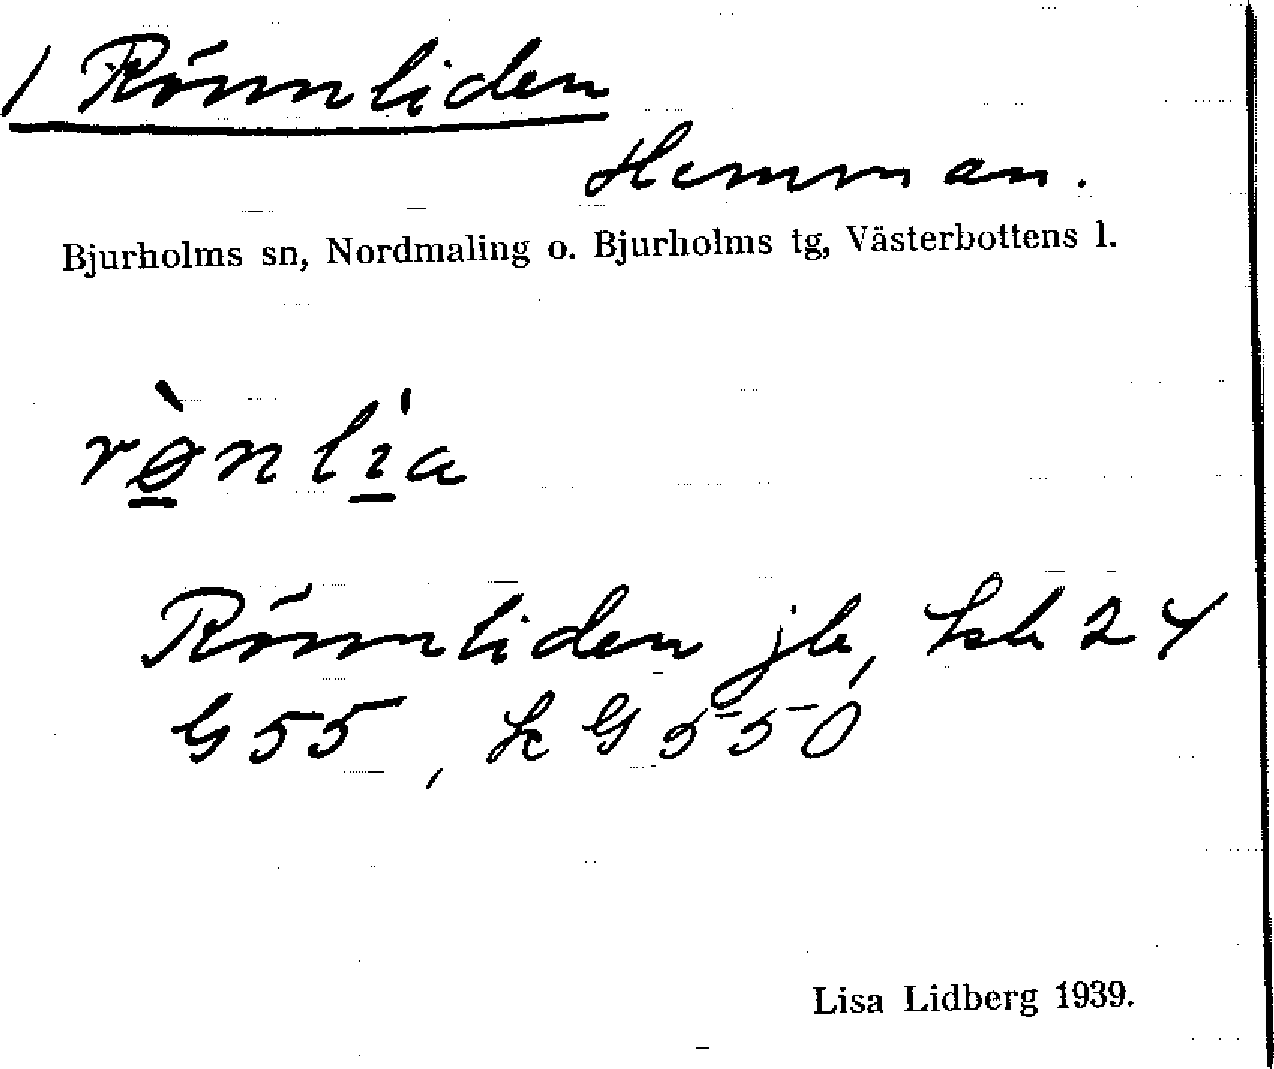 / Rönnliden
Hemman.
Bjurholms sn, Nordmaling o. Bjurholms tg, Västerbottens l.
rø̲̀nlı̲́a
Rönnliden jb, Lsb 24
G 55, Lc G 550
Lisa Lidberg 1939.